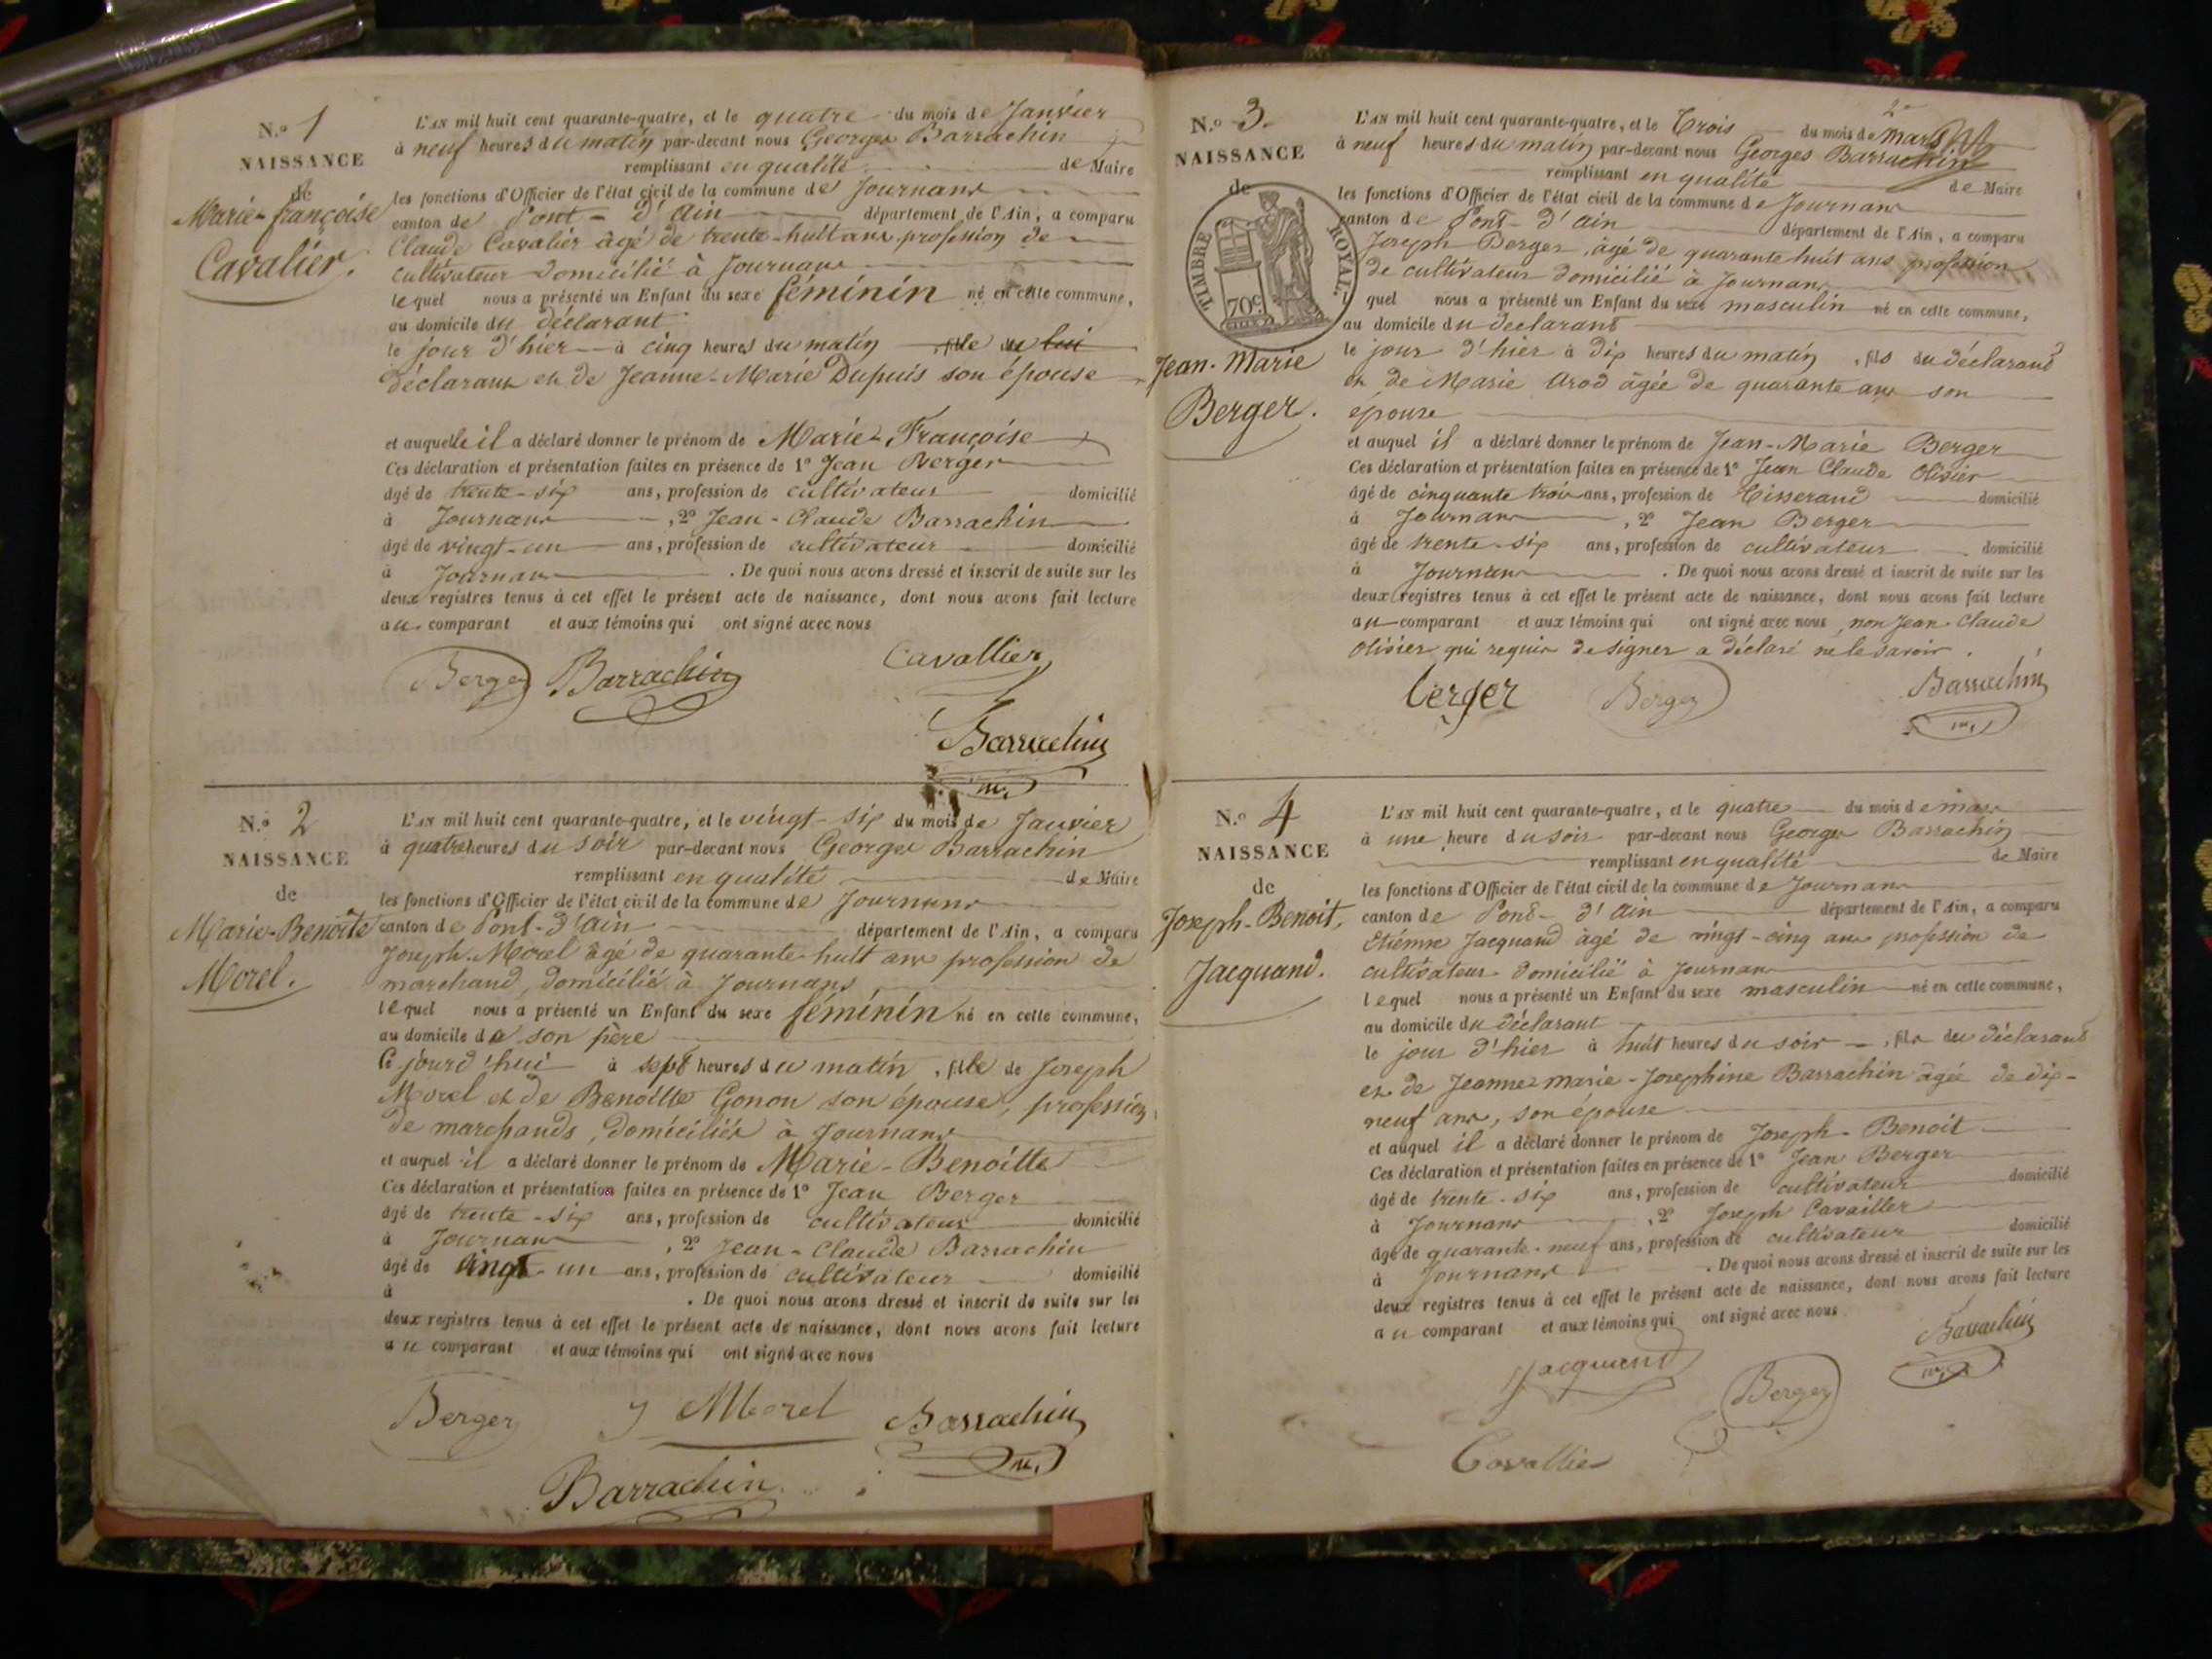 N.º 1
NAISSANCE
de
Marie-françoise
Cavalier.
L'AN mil huit cent quarante-quatre, et le quatre du mois de Janvier
à neuf heures du matin par-devant nous Georges Barrachin
remplissant en qualité de Maire
les fonctions d'Officier de l'état civil de la commune de Journans
canton de Pont-d'Ain département de l'Ain, a comparu
Claude Cavalier âgé de trente-huit ans profession de
cultivateur domicilié à Journans
lequel nous a présenté un Enfant du sexe féminin né en cette commune,
au domicile du déclarant
le jour d'hier à cinq heures du matin, fille du lui
déclarant et de Jeanne-Marie Dupuis son épouse
et auquelle il a déclaré donner le prénom de Marie-Françoise
Ces déclaration et présentation faites en présence de 1º Jean Berger
âgé de trente-six ans, profession de cultivateur domicilié
à Journans, 2º Jean-Claude Barrachin
âgé de vingt-un ans, profession de cultivateur domicilié
à Journans. De quoi nous avons dressé et inscrit de suite sur les
deux registres tenus à cet effet le présent acte de naissance, dont nous avons fait lecture
au comparant et aux témoins qui ont signé avec nous
Berger Barrachin Cavallier
Barrachin
m.
N.º 2
NAISSANCE
de
Marie-Benoîte
Morel.
L'AN mil huit cent quarante-quatre, et le vingt-six du mois de Janvier
à quatre heures du soir par-devant nous Georges Barrachin
remplissant en qualité de Maire
les fonctions d'Officier de l'état civil de la commune de Journans
canton de Pont-d'Ain département de l'Ain, a comparu
Joseph Morel âgé de quarante-huit ans profession de
marchand, domicilié à Journans
lequel nous a présenté un Enfant du sexe féminin né en cette commune,
au domicile de son père
ce jourd'hui à sept heures du matin, fille de Joseph
Morel et de Benoitte Gonon son épouse, profession
de marchands, domiciliés à Journans
et auquel il a déclaré donner le prénom de Marie-Benoitte
Ces déclaration et présentation faites en présence de 1º Jean Berger
âgé de trente-six ans, profession de cultivateur domicilié
à Journans, 2º Jean-Claude Barrachin
âgé de vingt-un ans, profession de cultivateur domicilié
à . De quoi nous avons dressé et inscrit de suite sur les
deux registres tenus à cet effet le présent acte de naissance, dont nous avons fait lecture
au comparant et aux témoins qui ont signé avec nous
Berger J Morel Barrachin
m.
Barrachin
N.º 3.
NAISSANCE
de
TIMBRE ROYAL.
70c
Jean-Marie
Berger.
2e
L'AN mil huit cent quarante-quatre, et le Trois du mois de Mars
à neuf heures du matin par-devant nous Georges Barrachin
remplissant en qualité de Maire
les fonctions d'Officier de l'état civil de la commune de Journans
canton de Pont-d'Ain département de l'Ain, a comparu
Joseph Berger, âgé de quarante huit ans profession
de cultivateur domicilié à Journans
quel nous a présenté un Enfant du sexe masculin né en cette commune,
au domicile du déclarant
le jour d'hier à dix heures du matin, fils du déclarant
et de Marie Arod âgée de quarante ans son
épouse
et auquel il a déclaré donner le prénom de Jean-Marie Berger
Ces déclaration et présentation faites en présence de 1º Jean Claude Olivier
âgé de cinquante trois ans, profession de Tisserand domicilié
à Journans, 2º Jean Berger
âgé de trente-six ans, profession de cultivateur domicilié
à Journans. De quoi nous avons dressé et inscrit de suite sur les
deux registres tenus à cet effet le présent acte de naissance, dont nous avons fait lecture
au comparant et aux témoins qui ont signé avec nous, non Jean-Claude
Olivier qui requis de signer a déclaré ne le savoir.
berger Berger Barrachin
m.
N.º 4
NAISSANCE
de
Joseph-Benoit.
Jacquand.
L'AN mil huit cent quarante-quatre, et le quatre du mois de mars
à une heure du soir par-devant nous Georges Barrachin
remplissant en qualité de Maire
les fonctions d'Officier de l'état civil de la commune de Journans
canton de Pont-d'Ain département de l'Ain, a comparu
Etienne Jacquand âgé de vingt-cinq ans profession de
cultivateur domicilié à Journans
lequel nous a présenté un Enfant du sexe masculin né en cette commune,
au domicile du déclarant
le jour d'hier à huit heures du soir, fils du déclarant
et de Jeanne marie-Josephine Barrachin âgée de dix-
neuf ans, son épouse
et auquel il a déclaré donner le prénom de Joseph-Benoit
Ces déclaration et présentation faites en présence de 1º Jean Berger
âgé de trente-six ans, profession de cultivateur domicilié
à Journans, 2º Joseph Cavailler
âgé de quarante-neuf ans, profession de cultivateur domicilié
à Journans. De quoi nous avons dressé et inscrit de suite sur les
deux registres tenus à cet effet le présent acte de naissance, dont nous avons fait lecture
au comparant et aux témoins qui ont signé avec nous
Jacquand Berger Barrachin
m.
Cavallier